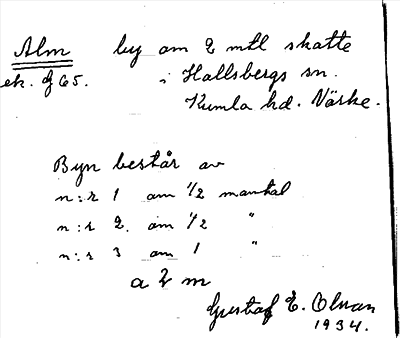 Alm by om 2 mtl skatte
ek. bl 65. i Hallsbergs sn.
Kumla hd. Närke.
Byn består av
n:r 1 om 1/2 mantal
n:r 2. om 1/2 "
n:r 3 om 1 "
a 2 m
Gustaf E.
1934.